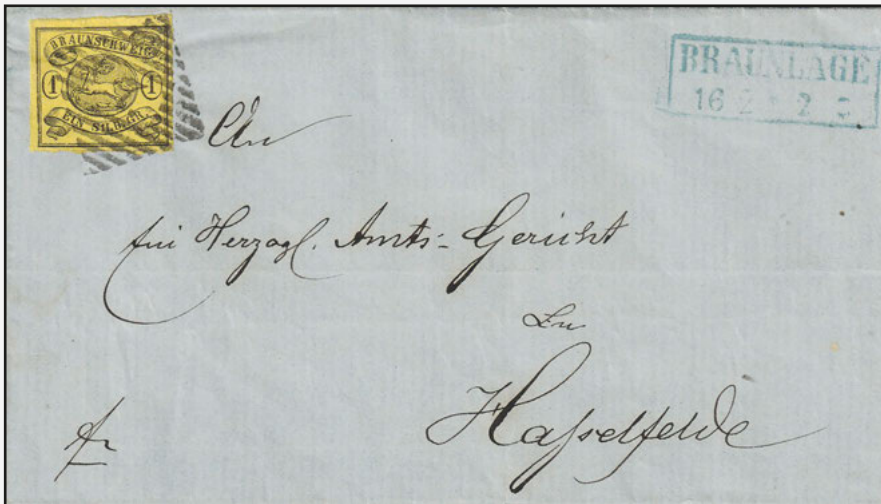 BRAUNSCHWEIG
1 1
EIN SILBERGR.
BRAUNLAGE
16 2 2
An
Herzogl. Amts-Gericht
zu
Hasselfelde
fr